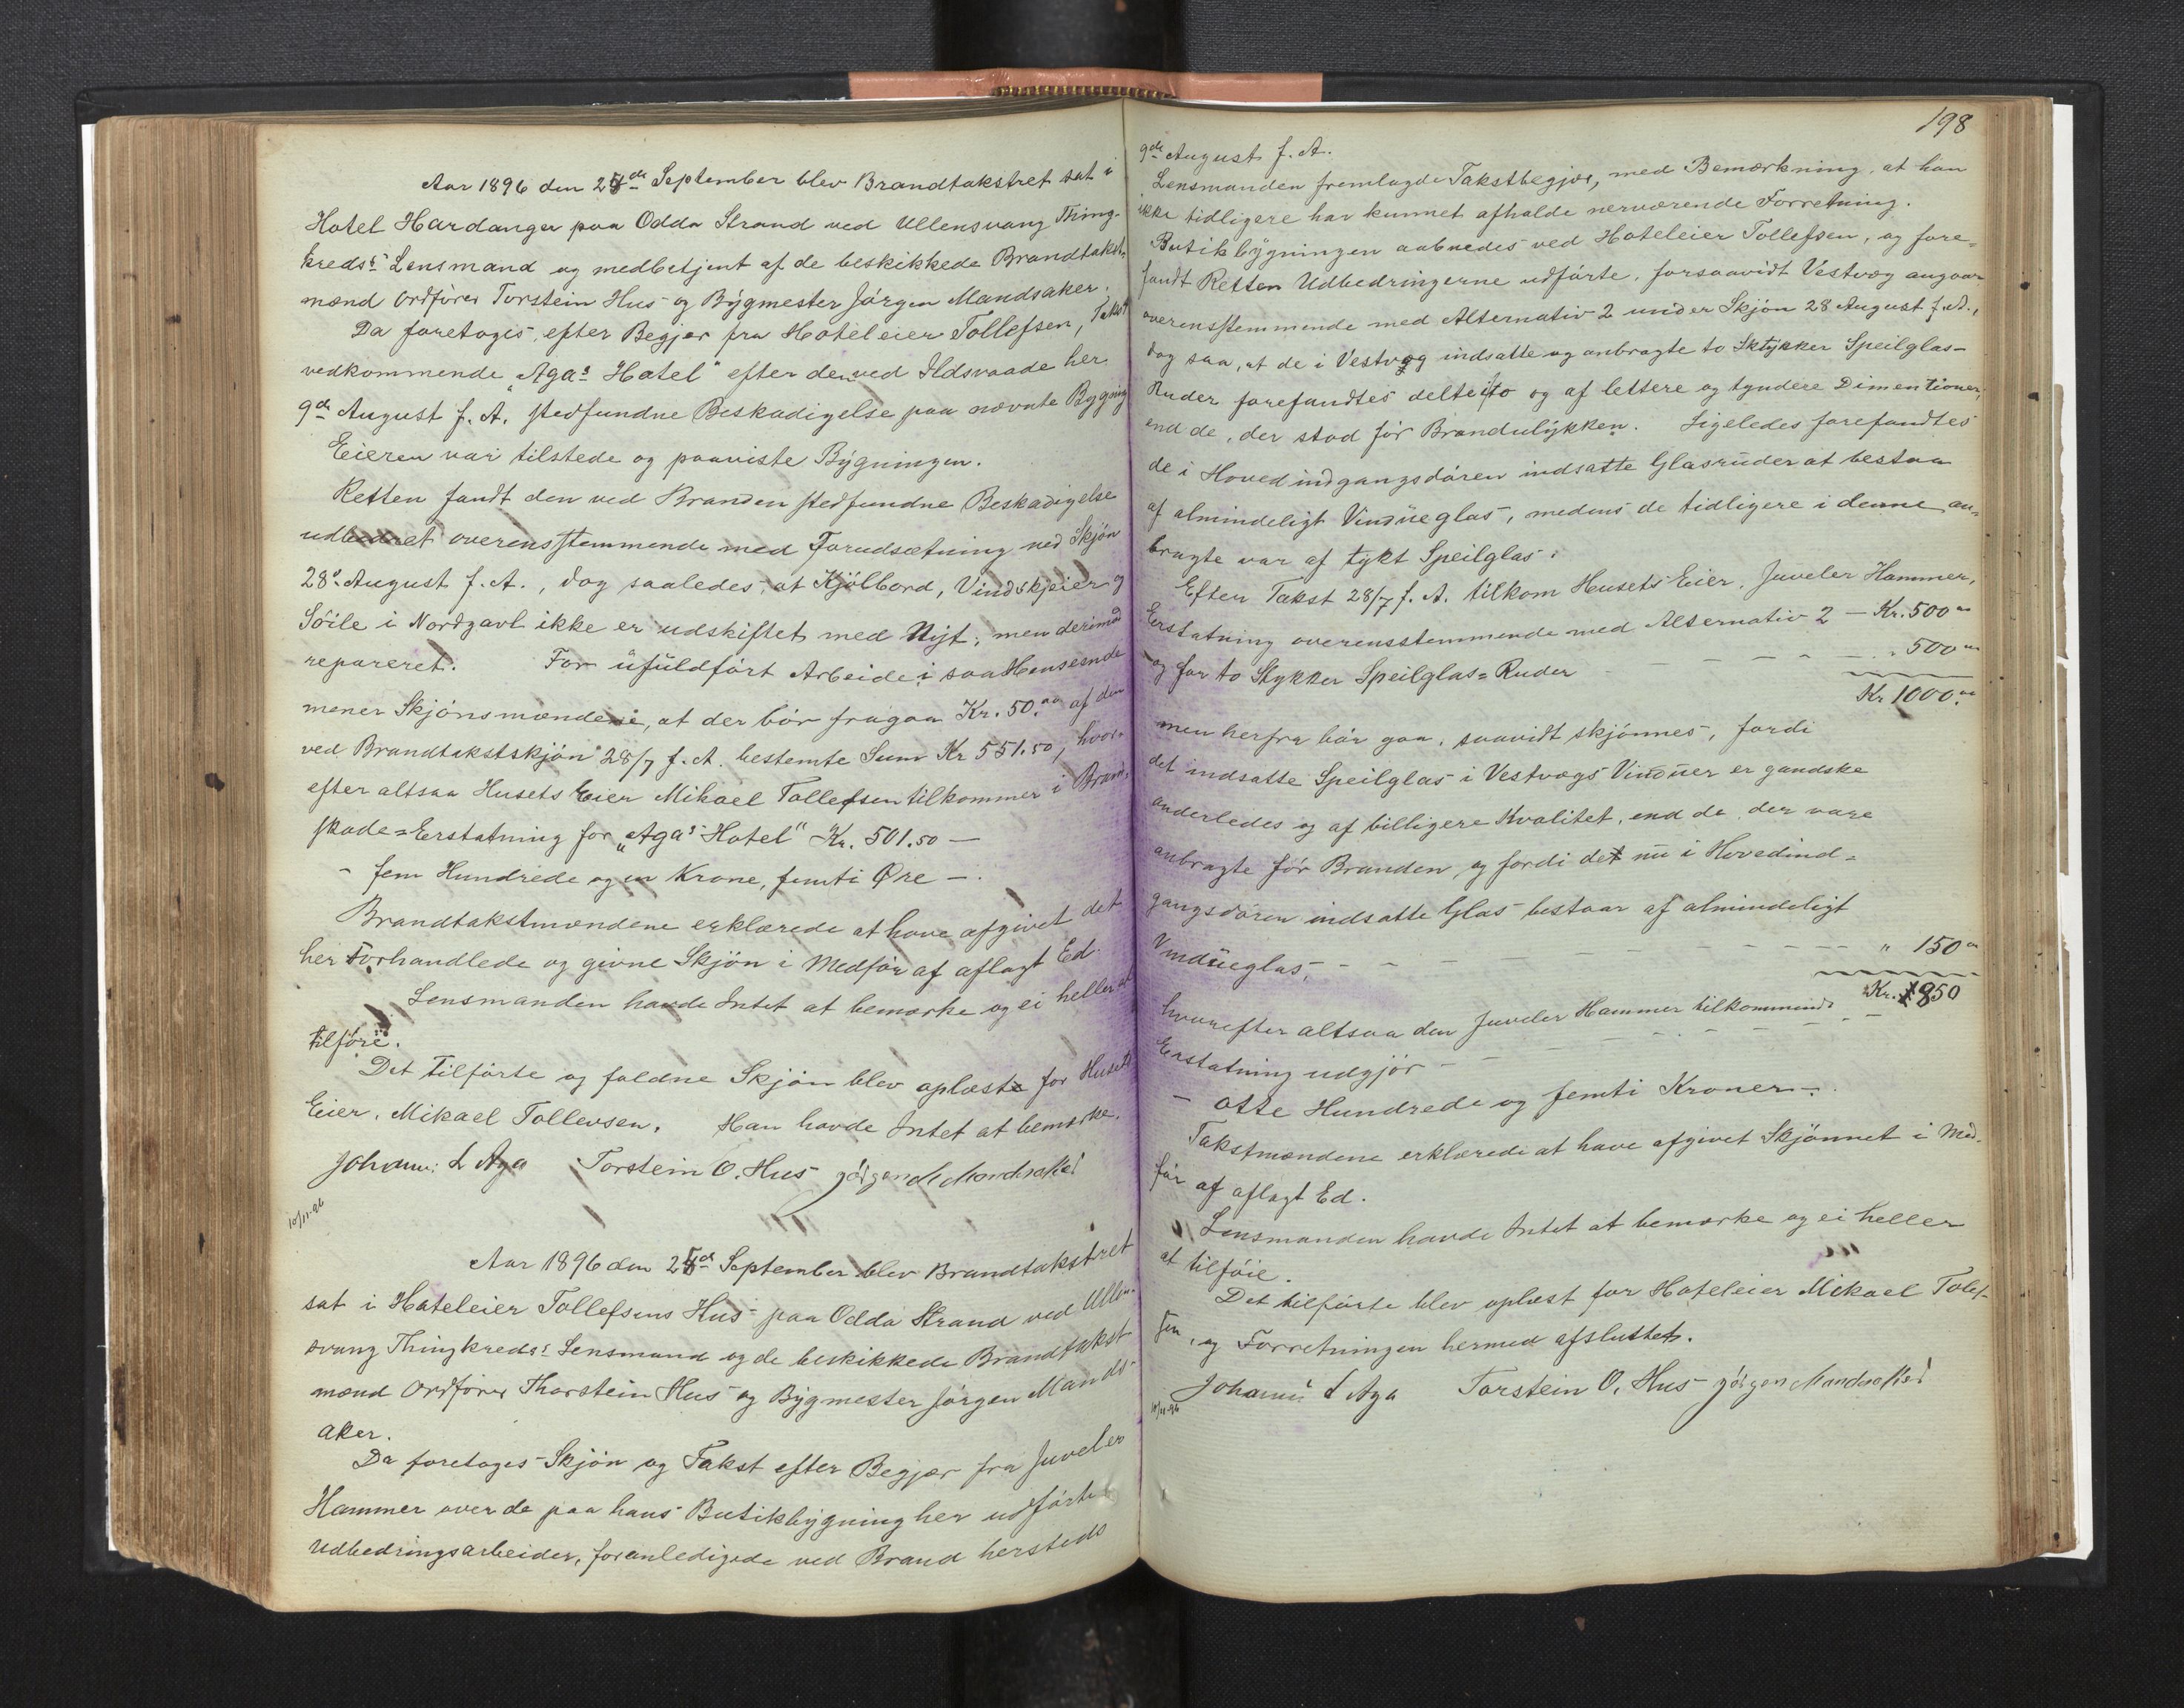 Aar 1896 den 25de September blev Brandtakstret sat i
Hotel Hardanger paa Odda Strand ved Ullensvang Thing-
kreds's Lensmand og medbetjent af de beskikkede Brandtakst-
mænd Ordfører Torstein Hus og Bygmester Jørgen Mandsaker.
Da foretoges, efter Begjær fra Hoteleier Tollefsen, Takst
vedkommende "Aga's Hotel" efter den ved Ildsvaade her
9de August f. A. stedfundne Beskadigelse paa nævnte Bygning
Eieren var tilstede og paaviste Bygningen.
Retten fandt den ved Branden stedfundne Beskadigelse
udbedret overensstemmende med Forudsætning ved Skjøn
28de August f. A., dog saaledes, at Kjølbord, Vindskjeier og
Söile i Nordgavl ikke er udskiftet med Nyt, men derimod
repareret. For ufuldført Arbeide i saa Henseende
mener Skjønsmændene, at der bør fragaa Kr. 50.00 af den
ved Brandtakstskjøn 28/7 f. A. bestemte Sum Kr 551.50, hvor-
efter altsaa Husets Eier Mikael Tollefsen tilkommer i Brand-
skade=Erstatning for "Aga's Hotel" Kr. 501.50 —
- fem Hundrede og en Krone, femti Øre —.
Brandtakstmændene erklærede at have afgivet det
her Forhandlede og givne Skjøn i Medfør af aflagt Ed.
Lensmanden havde Intet at bemærke og ei heller at
tilføie.
Det tilførte og faldne Skjøn blev oplæst for Husets
Eier, Mikael Tollevsen. Han havde Intet at bemærke.
Johannes L Aga Torstein O. Hus Jørgen M Mandsaker
10/11-96
Aar 1896 den 25de September blev Brandtakstret
sat i Hoteleier Tollefsens Hus paa Odda Strand ved Ullen-
svang Thingkreds's Lensmand og de beskikkede Brandtakst-
mænd Ordfører Thorstein Hus og Bygmester Jørgen Mands-
aker.
Da foretoges Skjøn og Takst efter Begjær fra Juveler
Hammer over de paa hans Butikbygning her udførte
Udbedringsarbeider, foranledigede ved Brand hersteds
198
9de August f. A.
Lensmanden fremlagde Takstbegjær, med Bemærkning, at han
ikke tidligere har kunnet afholde nærværende Forretning.
Butikbygningen aabnedes ved Hoteleier Tollefsen, og fore-
fandt Retten Udbedringerne udførte, forsaavidt Vestvæg angaar
overensstemmende med Alternativ 2 under Skjøn 28 August f. A.,
dog saa, at de i Vestvæg indsatte og anbragte to Stykker Speilglas-
Ruder forefandtes delte i to og af lettere og tyndere Dimentioner,
end de, der stod før Brandulykken. Ligeledes forefandtes
de i Hovedindgangsdøren indsatte Glasruder at bestaa
af almindeligt Vindueglas, medens de tidligere i denne an-
bragte var af tykt Speilglas.
Efter Takst 28/7 f. A. tilkom Husets Eier, Juveler Hammer,
Erstatning overensstemmende med Alternativ 2 — Kr. 500 00
og for to Stykker Speilglas=Ruder — — — — — " 500 00
Kr 1000.00
men herfra bør gaa, saavidt skjønnes, fordi
det indsatte Speilglas i Vestvægs Vinduer er gandske
anderledes og af billigere Kvalitet, end de, der vare
anbragte før Branden, og fordi det nu i Hovedind-
gangsdøren indsatte Glas bestaar af almindeligt
Vindueglas, - - - — — — — — — " 150 00
Kr. 850
hvorefter altsaa den Juveler Hammer tilkommende
Erstatning udgjør — — — — — — —
— otte Hundrede og femti Kroner —.
Takstmændene erklærede at have afgivet Skjønnet i Med-
før af aflagt Ed.
Lensmanden havde Intet at bemærke og ei heller
at tilføie.
Det tilførte blev oplæst for Hoteleier Mikael Tolef-
sen, og Forretningen hermed afsluttet.
Johannes L Aga Torstein O. Hus Jørgen Mandsaker
10/11-96